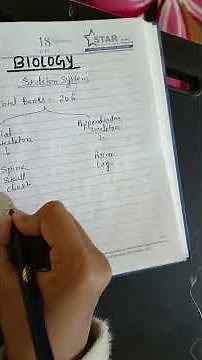 18
STAR
BIOLOGY
Skeleton System
Total bones = 206
Skeleton
Spine
Arm
Skull
Leg
chest